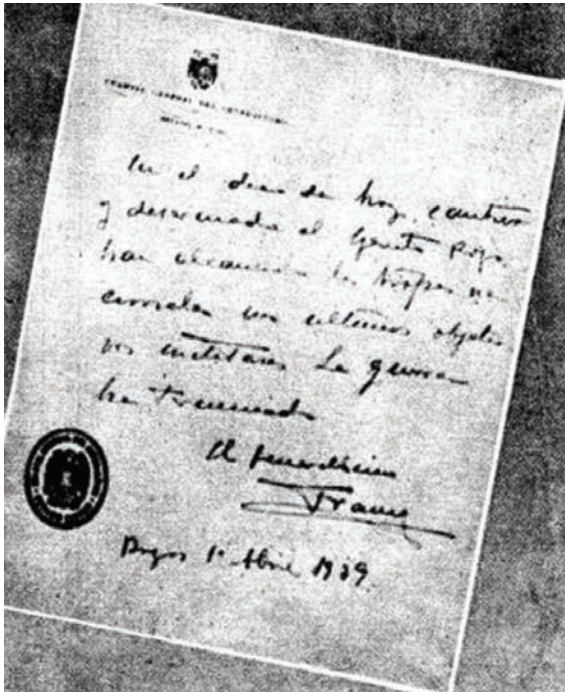 CUARTEL GENERAL DEL GENERALÍSIMO
En el dia de hoy, cautivo
y desarmado el Ejercito Rojo
han alcanzado las tropas na-
cionales sus ultimos objeti-
vos militares. La guerra
ha terminado
El Generalisimo
Franco
Burgos 1º Abril 1939